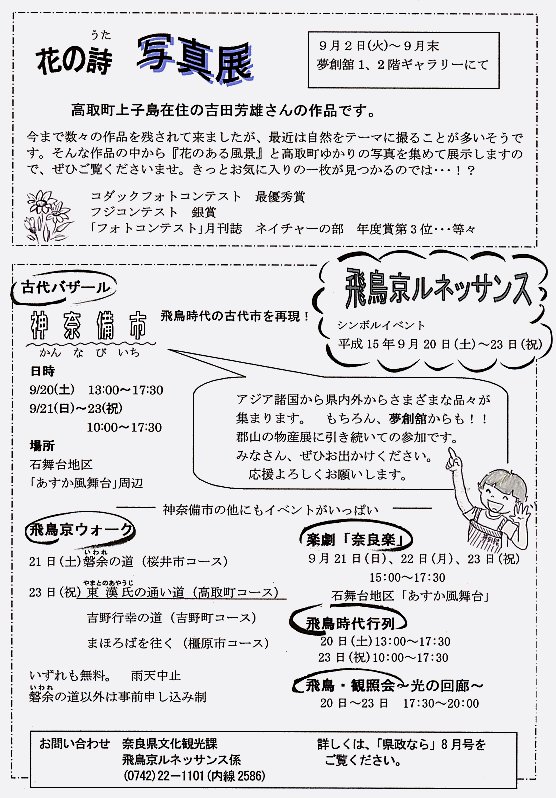 うた
花の詩 写真展
9月2日(火)～9月末
夢創舘1、2階ギャラリーにて
高取町上子島在住の吉田芳雄さんの作品です。
今まで数々の作品を残されて来ましたが、最近は自然をテーマに撮ることが多いそうで
す。そんな作品の中から『花のある風景』と高取町ゆかりの写真を集めて展示しますの
で、ぜひご覧くださいませ。きっとお気に入りの一枚が見つかるのでは･･･！？
コダックフォトコンテスト 最優秀賞
フジコンテスト 銀賞
「フォトコンテスト」月刊誌 ネイチャーの部 年度賞第3位･･･等々
飛鳥京ルネッサンス
シンボルイベント
平成15年9月20日(土)～23日(祝)
古代バザール
神奈備市
かんなびいち
飛鳥時代の古代市を再現！
日時
9/20(土) 13:00～17:30
9/21(日)～23(祝)
10:00～17:30
場所
石舞台地区
「あすか風舞台」周辺
アジア諸国から県内外からさまざまな品々が
集まります。 もちろん、夢創舘からも！！
郡山の物産展に引き続いての参加です。
みなさん、ぜひお出かけください。
応援よろしくお願いします。
神奈備市の他にもイベントがいっぱい
飛鳥京ウォーク
いわれ
21日(土)磐余の道（桜井市コース）
やまとのあやうじ
23日(祝)東漢氏の通い道（高取町コース）
吉野行幸の道（吉野町コース）
まほろばを往く（橿原市コース）
いずれも無料。 雨天中止
いわれ
磐余の道以外は事前申し込み制
楽劇「奈良楽」
9月21日(日)、22日(月)、23日(祝)
15:00～17:30
石舞台地区「あすか風舞台」
飛鳥時代行列
20日(土)13:00～17:30
23日(祝)10:00～17:30
飛鳥・観照会～光の回廊～
20日～23日 17:30～20:00
お問い合わせ 奈良県文化観光課
飛鳥京ルネッサンス係
(0742)22－1101(内線2586)
詳しくは、「県政なら」8月号を
ご覧ください。